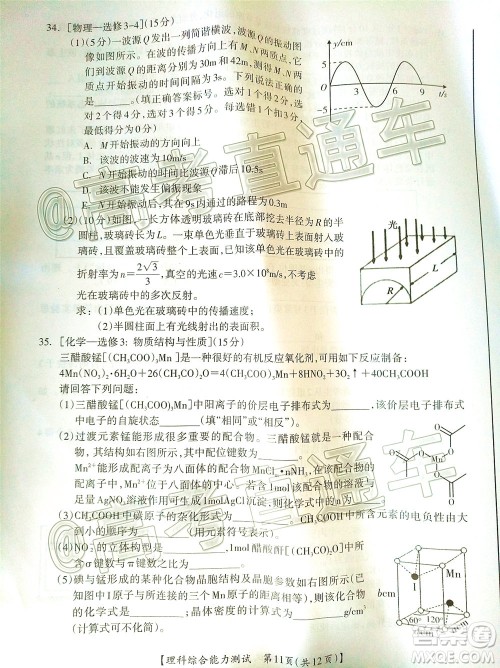 34. [物理—选修3-4](15分)
(1)(5分)一波源Q发出一列简谐横波,波源Q的振动图
像如图所示。在波的传播方向上有M、N两质点,它
们到波源Q的距离分别为30m和42m,测得M、N两质
点开始振动的时间间隔为3s。下列说法正确的是
________。(填正确答案标号。选对1个得2分,
选对2个得4分,选对3个得5分。每选错1个扣3分,
最低得分为0分)
A. N开始振动的方向向上
B. 该波的波速为10m/s
C. 该波的波峰经过M、N的时刻差10.5s
D. 该波不可能产生偏振现象
E. N开始振动后,其在9s内通过的路程为0.9m
(2)(10分)如图,一长方体透明玻璃砖在底部挖去半径为R的半
圆柱,玻璃砖长为L。一束单色光垂直于玻璃砖上表面射入玻
璃砖,且覆盖玻璃砖整个上表面,已知该单色光在玻璃砖中的
折射率为n=2√3/3,真空的光速c=3.0×10⁸m/s,不考虑
光在玻璃砖中的多次反射。
求:(1)单色光在玻璃砖中的传播速度;
(2)半圆柱面上有光线射出的表面积。
y/cm
5
0
-5
3
6
9
t/s
光
R
L
35. [化学—选修3: 物质结构与性质](15分)
三醋酸锰[(CH₃COO)₃Mn]是一种很好的有机反应氧化剂,可用如下反应制备:
4Mn(NO₃)₂·6H₂O+26(CH₃CO)₂O=4(CH₃COO)₃Mn+8HNO₂+3O₂↑+40CH₃COOH
请回答下列问题:
(1)三醋酸锰[(CH₃COO)₃Mn]中阳离子的价层电子排布式为________,该价层电子排布式
中电子的自旋状态________(填“相同”或“相反”)。
(2)过渡元素锰能形成很多重要的配合物。三醋酸锰就是一种配合
物,其结构如右图所示,
Mn²⁺能形成配离子为八面体的配合物MnClₘ·nNH₃,在该配合物
的配离子中,Mn²⁺位于八面体的中心。若含1mol该配合物的溶液
与足量AgNO₃溶液作用可生成1molAgCl沉淀,则该配离子的化学
式为________。
Mn
(3)CH₃COOH中碳原子的杂化形式为________,CH₃COOH中所含元素的电负性由大
到小的顺序为________(用元素符号表示)。
(4)NO₂⁻的立体构型是________,1mol醋酸酐[(CH₃CO)₂O]
分子中含σ键数之为________。
(5)碘与锰形成的某种化合物晶胞结构及晶胞参数如右图所示(已
知图中I原子与所连接的三个Mn原子的距离相等),则该化合物
的化学式是________,晶体密度的计算式为________g/cm³
(写出计算式)。
I
Mn
60°
120°
【理科综合能力测试 第11页(共12页)】
@高考直通车
@高考直通车